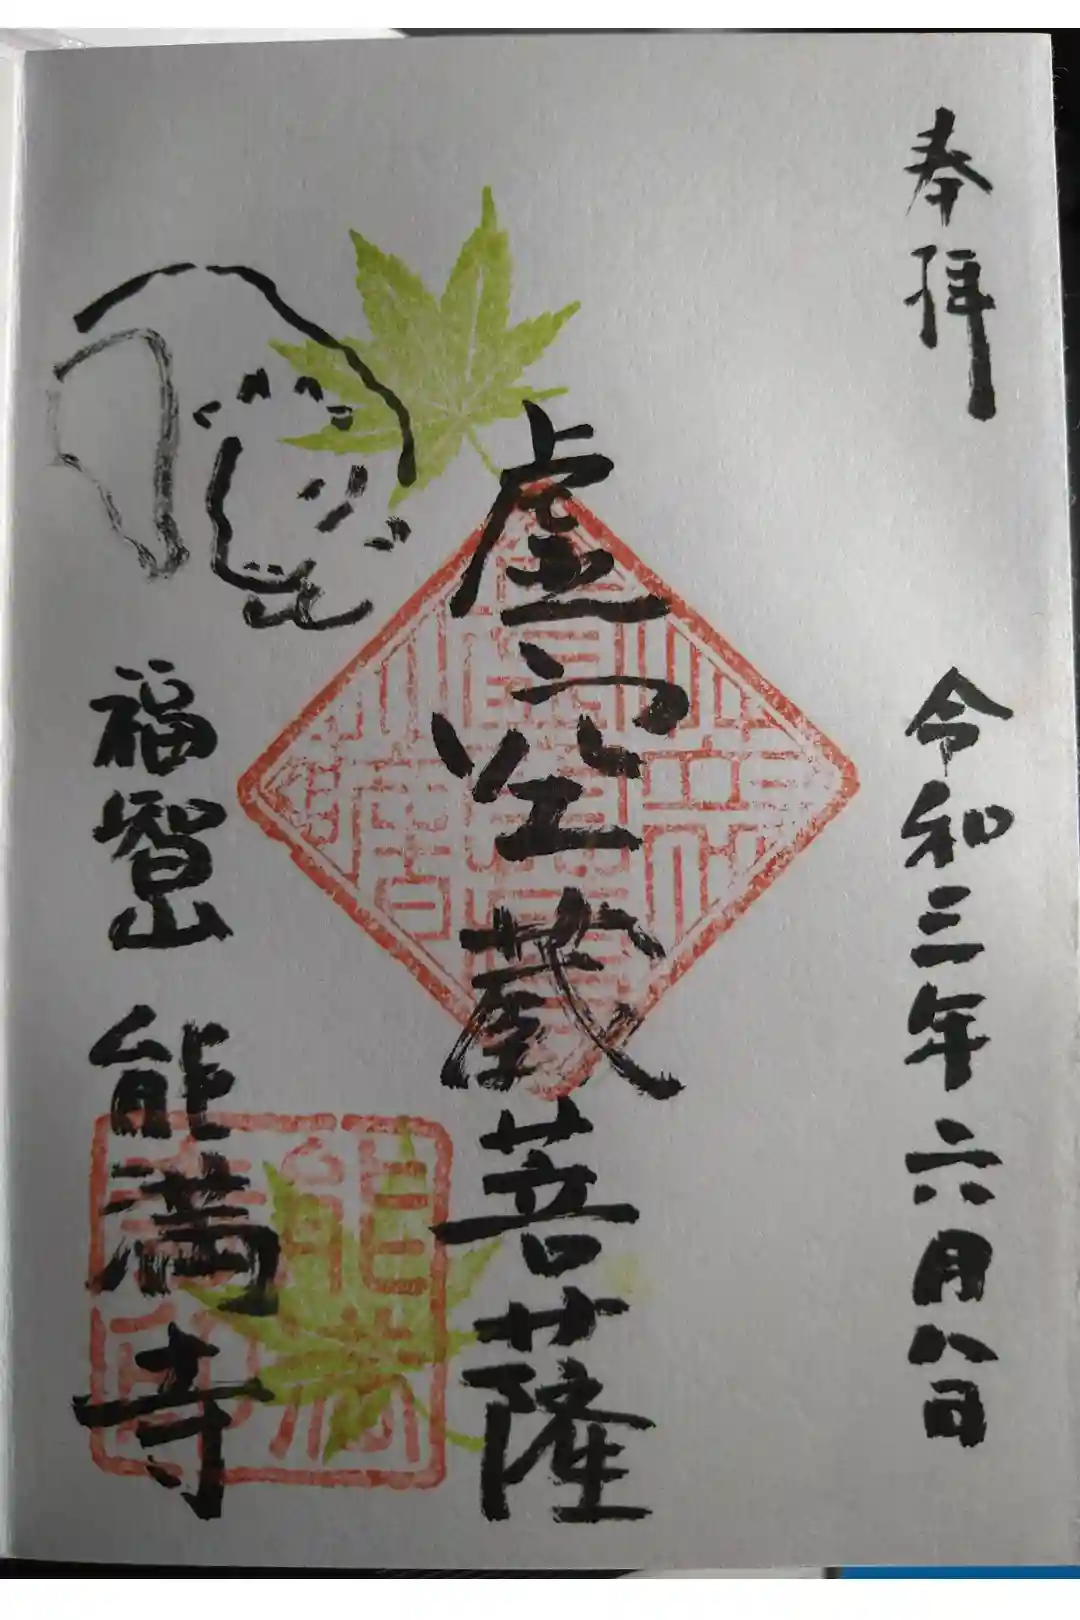 奉拝
令和三年六月八日
虚空蔵菩薩
福智山 能満寺
能満